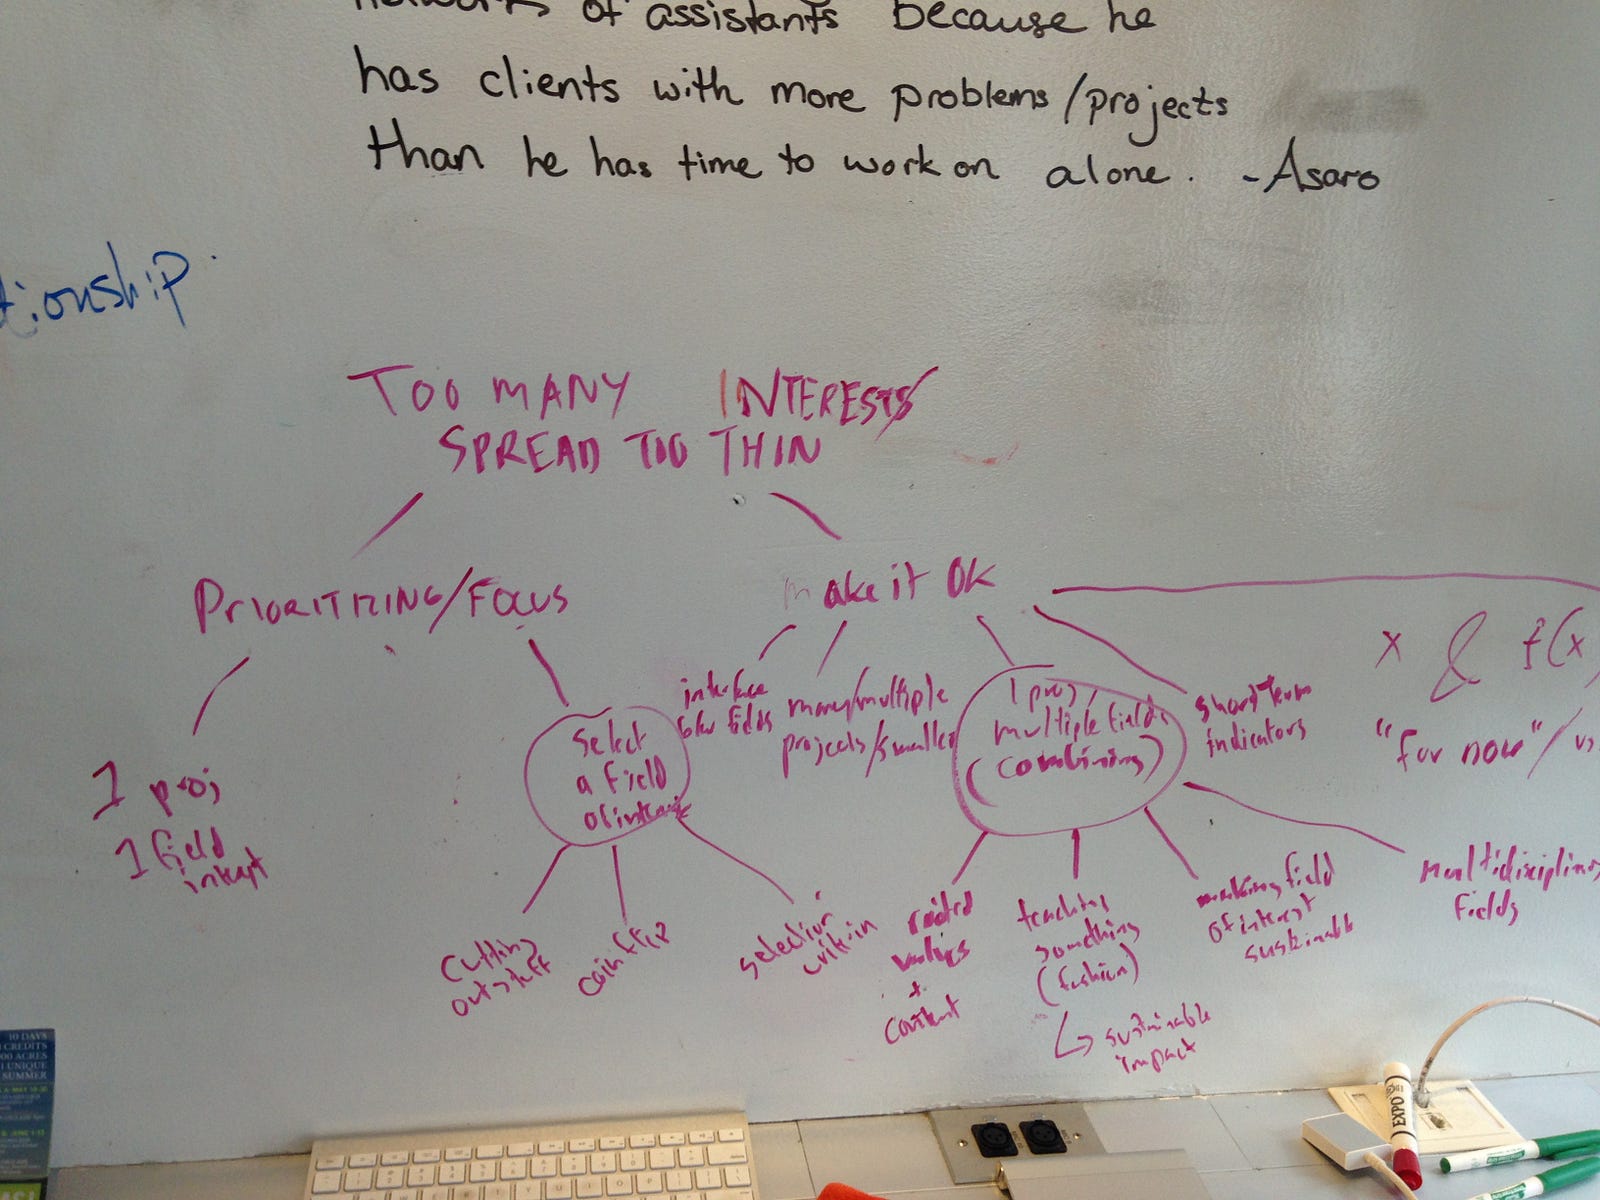 networks of assistants because he
has clients with more problems/projects
than he has time to work on alone. - Asaro
tionship
TOO MANY INTERESTS/
SPREAD TOO THIN
PRIORITIZING/FOCUS
make it OK
1 proj
1 field
select
a field
of interest
cutting
out stuff
coin flip
selection
interface
fields
many/multiple
projects/smaller
1 proj,
multiple fields
(combining)
short term
indicators
values
+
content
teaching
something
(fashion)
↳ sustainable
impact
making field
of interest
sustainable
multidisciplinary
fields
x & f(x
"for now"/vs
10 DAYS
CREDITS
00 ACRES
1 UNIQUE
SUMMER
EXPO